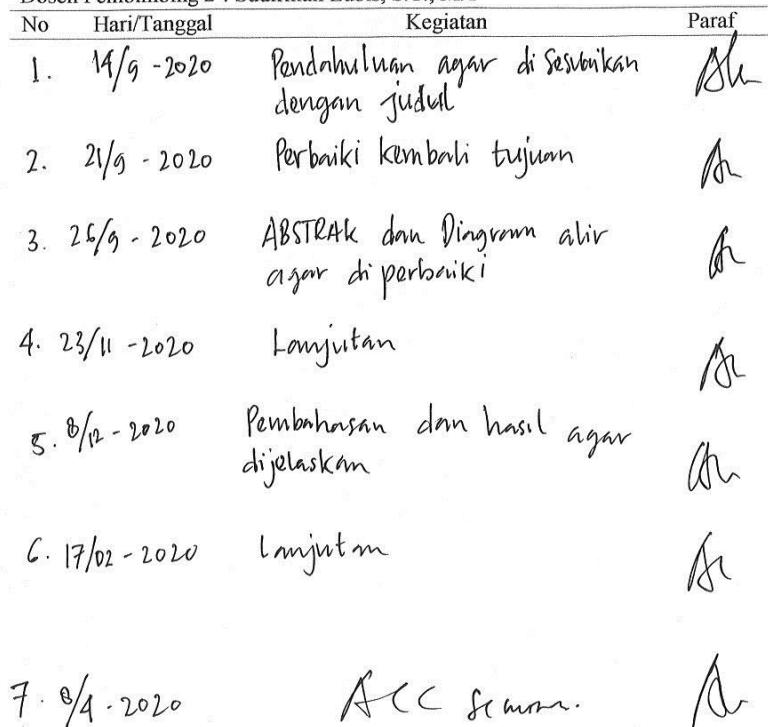 No Hari/Tanggal Kegiatan Paraf
1. 14/9 - 2020 Pendahuluan agar di sesuaikan
dengan judul
2. 21/9 - 2020 Perbaiki kembali tujuan
3. 26/9 - 2020 ABSTRAK dan Diagram alir
agar di perbaiki
4. 23/11 - 2020 Lanjutan
5. 8/12 - 2020 Pembahasan dan hasil agar
dijelaskan
6. 17/02 - 2020 Lanjutan
7. 8/4 - 2020 ACC